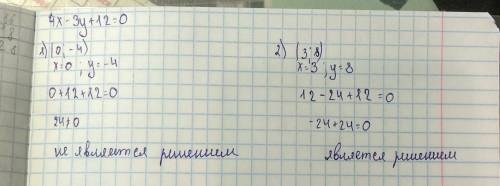 4x-3y+12=0
1) (0,-4)
x=0; y=-4
0+12+12=0
24≠0
не является решением
2) (3;8)
x=3; y=8
12-24+12=0
-24+24=0
является решением